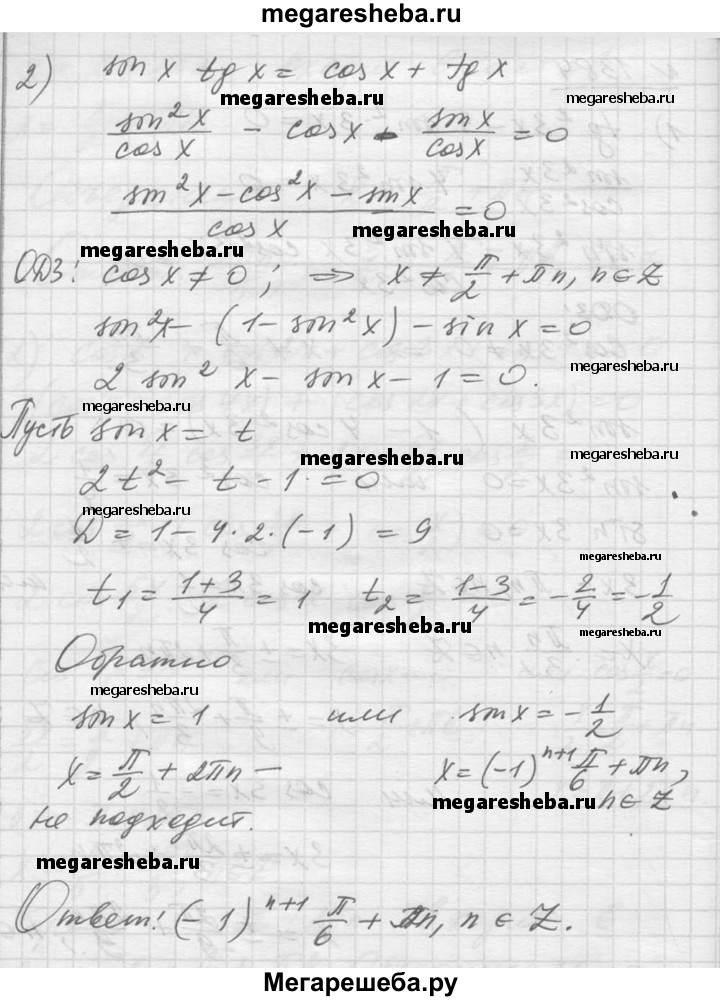 megaresheba.ru
2) sin x tg x = cos x + tg x
megaresheba.ru megaresheba.ru
sin²x/cos x - cos x - sin x/cos x = 0
(sin²x - cos²x - sin x)/cos x = 0
megaresheba.ru megaresheba.ru
ОДЗ: cos x ≠ 0; ⇒ x ≠ π/2 + πn, n ∈ Z
sin²x - (1 - sin²x) - sin x = 0
megaresheba.ru
2 sin² x - sin x - 1 = 0.
megaresheba.ru
Пусть sin x = t
megaresheba.ru
2t² - t - 1 = 0
megaresheba.ru
D = 1 - 4·2·(-1) = 9
megaresheba.ru
t₁ = (1+3)/4 = 1 t₂ = (1-3)/4 = -2/4 = -1/2
megaresheba.ru megaresheba.ru
Обратно
megaresheba.ru
sin x = 1 или sin x = -1/2
x = π/2 + 2πn — x = (-1)ⁿ⁺¹ π/6 + πn,
megaresheba.ru n ∈ Z
не подходит.
megaresheba.ru
Ответ: (-1)ⁿ⁺¹ π/6 + πn, n ∈ Z.
Мегарешеба.ру